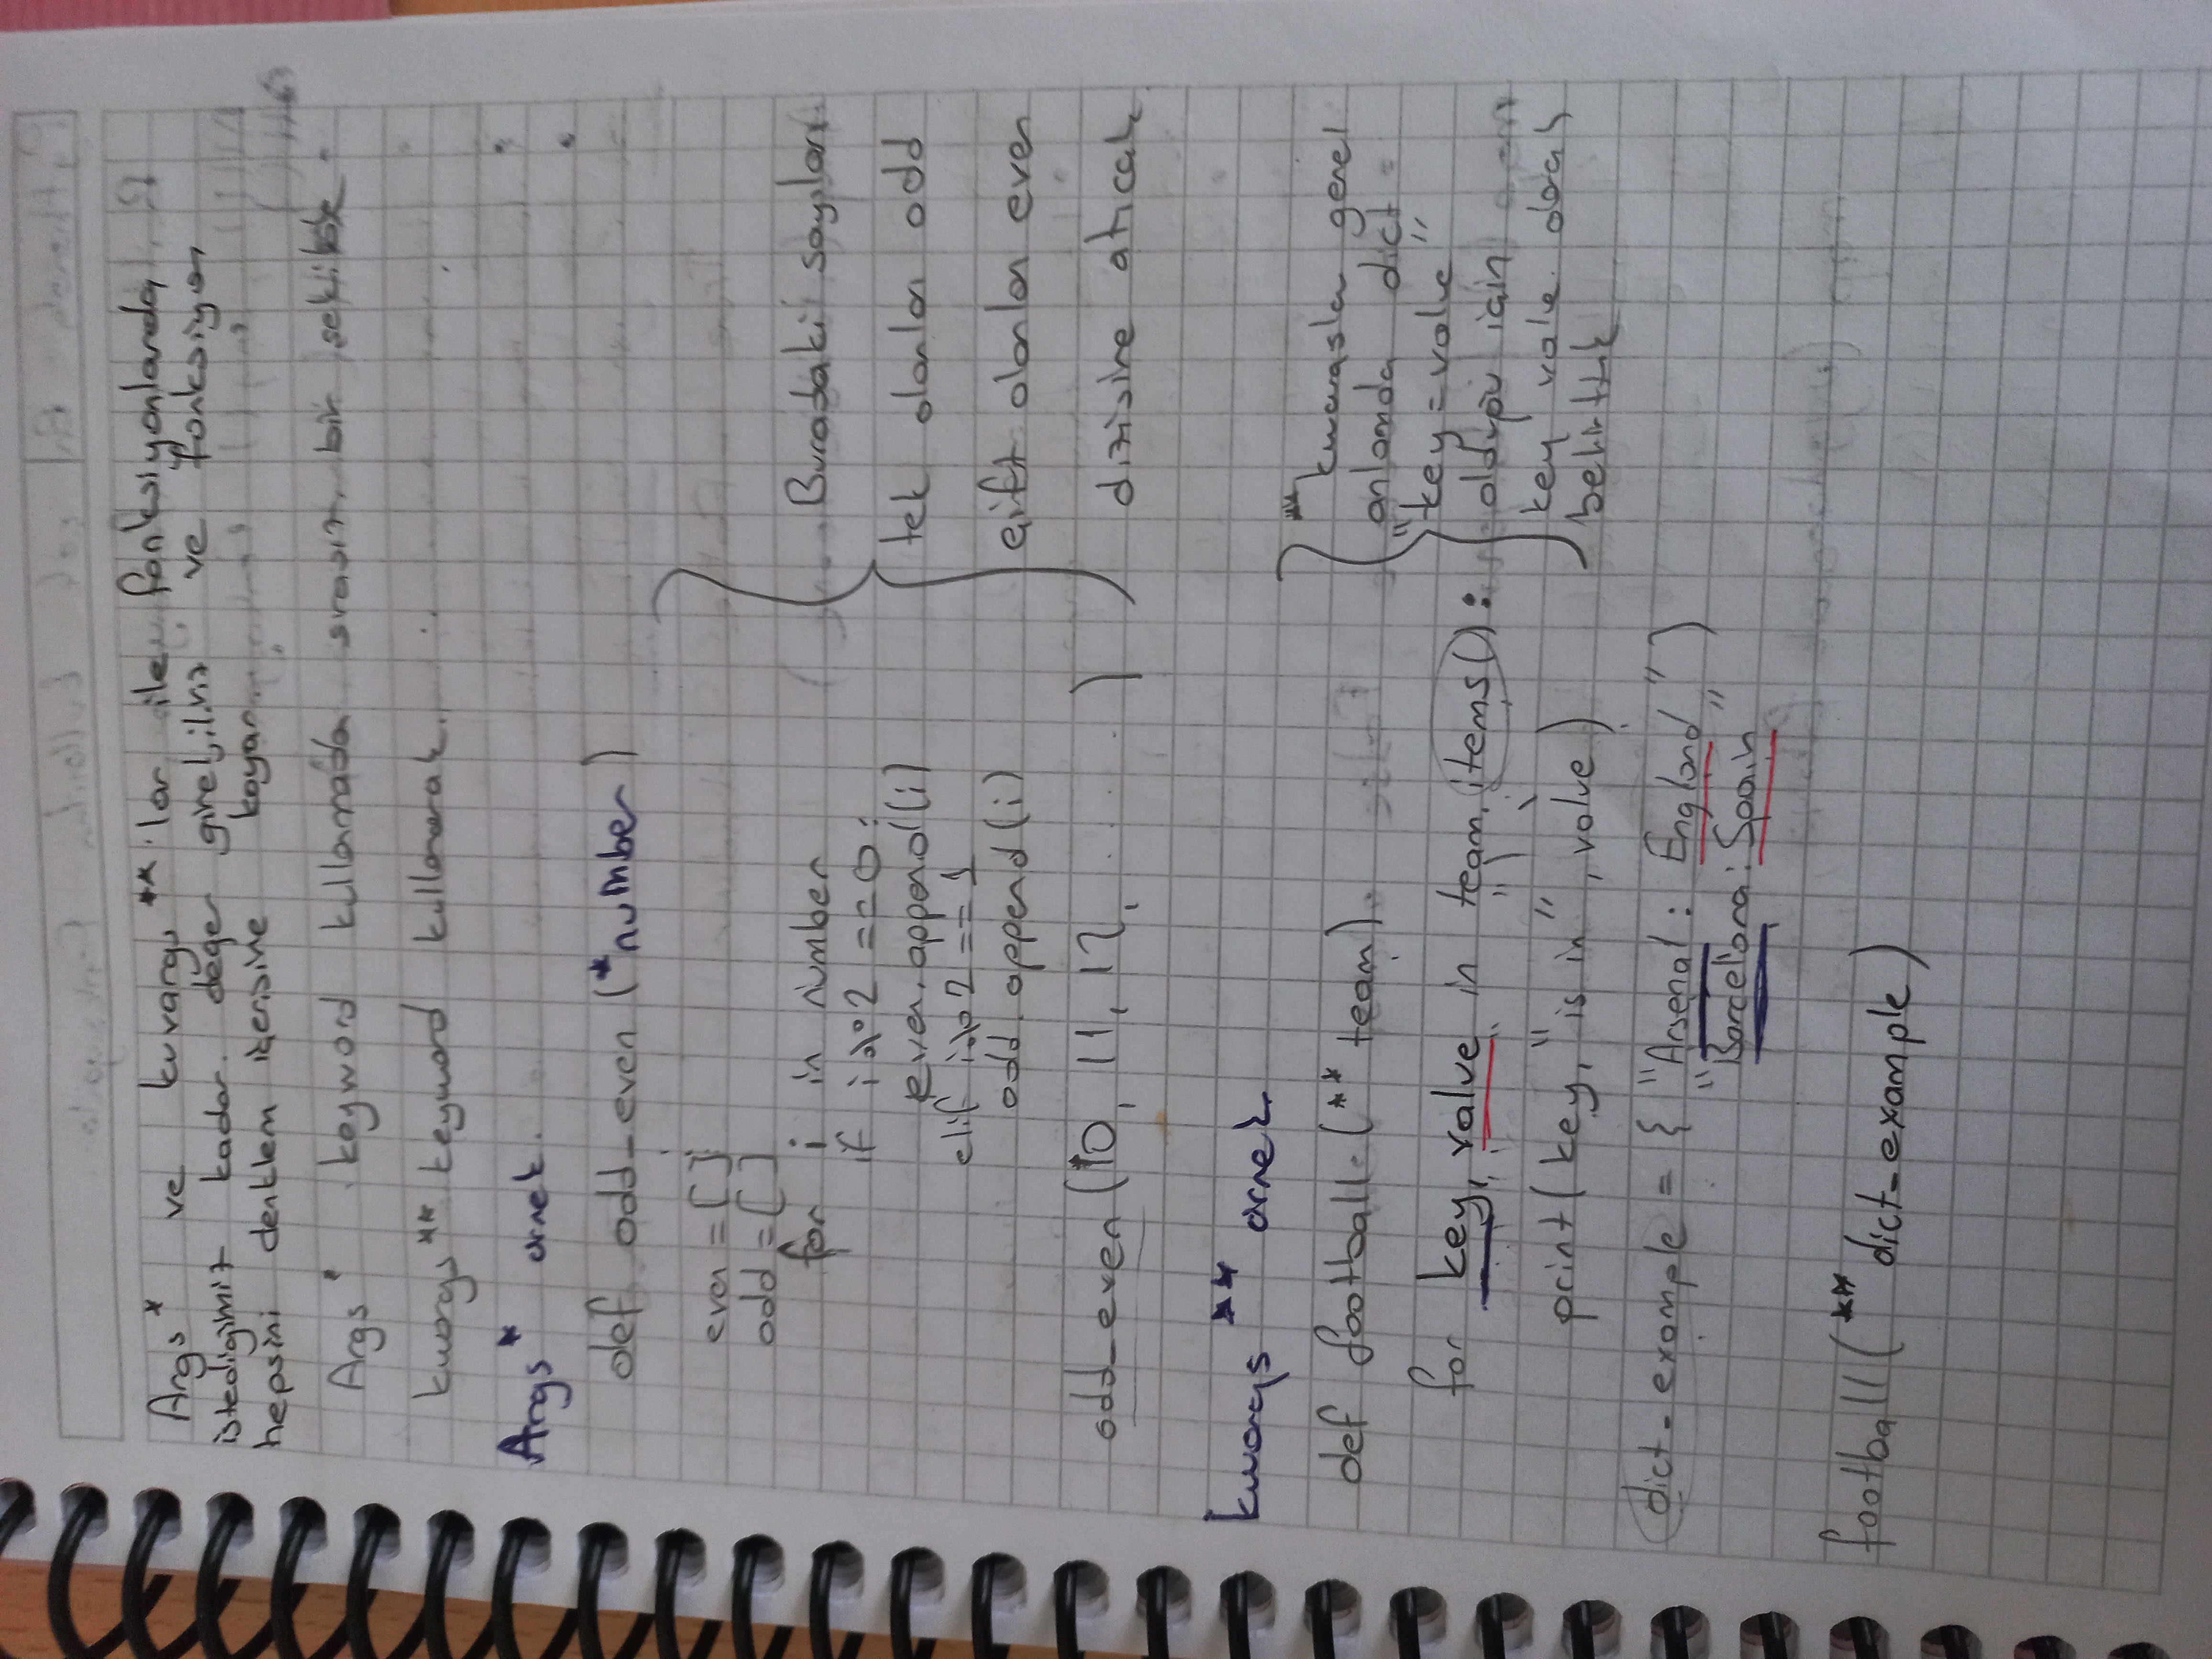 Args* ve kuvargs**'lar ile fonksiyonlarda
istedigimiz kadar değer girebiliriz ve fonksiyon
hepsini denklem içerisine koyar.
Args* keyword kullanmada sırasız bir sekilde
kwargs** keyword kullanarak.
Args* örnek.
def odd_even (*number)
even = []
odd = []
for i in number
if i%2 == 0:
even.append(i)
elif i%2 == 1
odd.append(i)
odd_even (10, 11, 12, ......)
Buradaki sayıları
tek olanları odd
çift olanları even
dizisine atıcak
kwargs ** örnek
def football (** team)
for key, value in team.items():
print( key, "is in", value)
** kwargslar genel
anlamda dict
"key=value"
olduğu için
key value olarak
belirttik
dict_example = { "Arsenal : England,")
"Barcelona : Spain"
football ( ** dict_example )